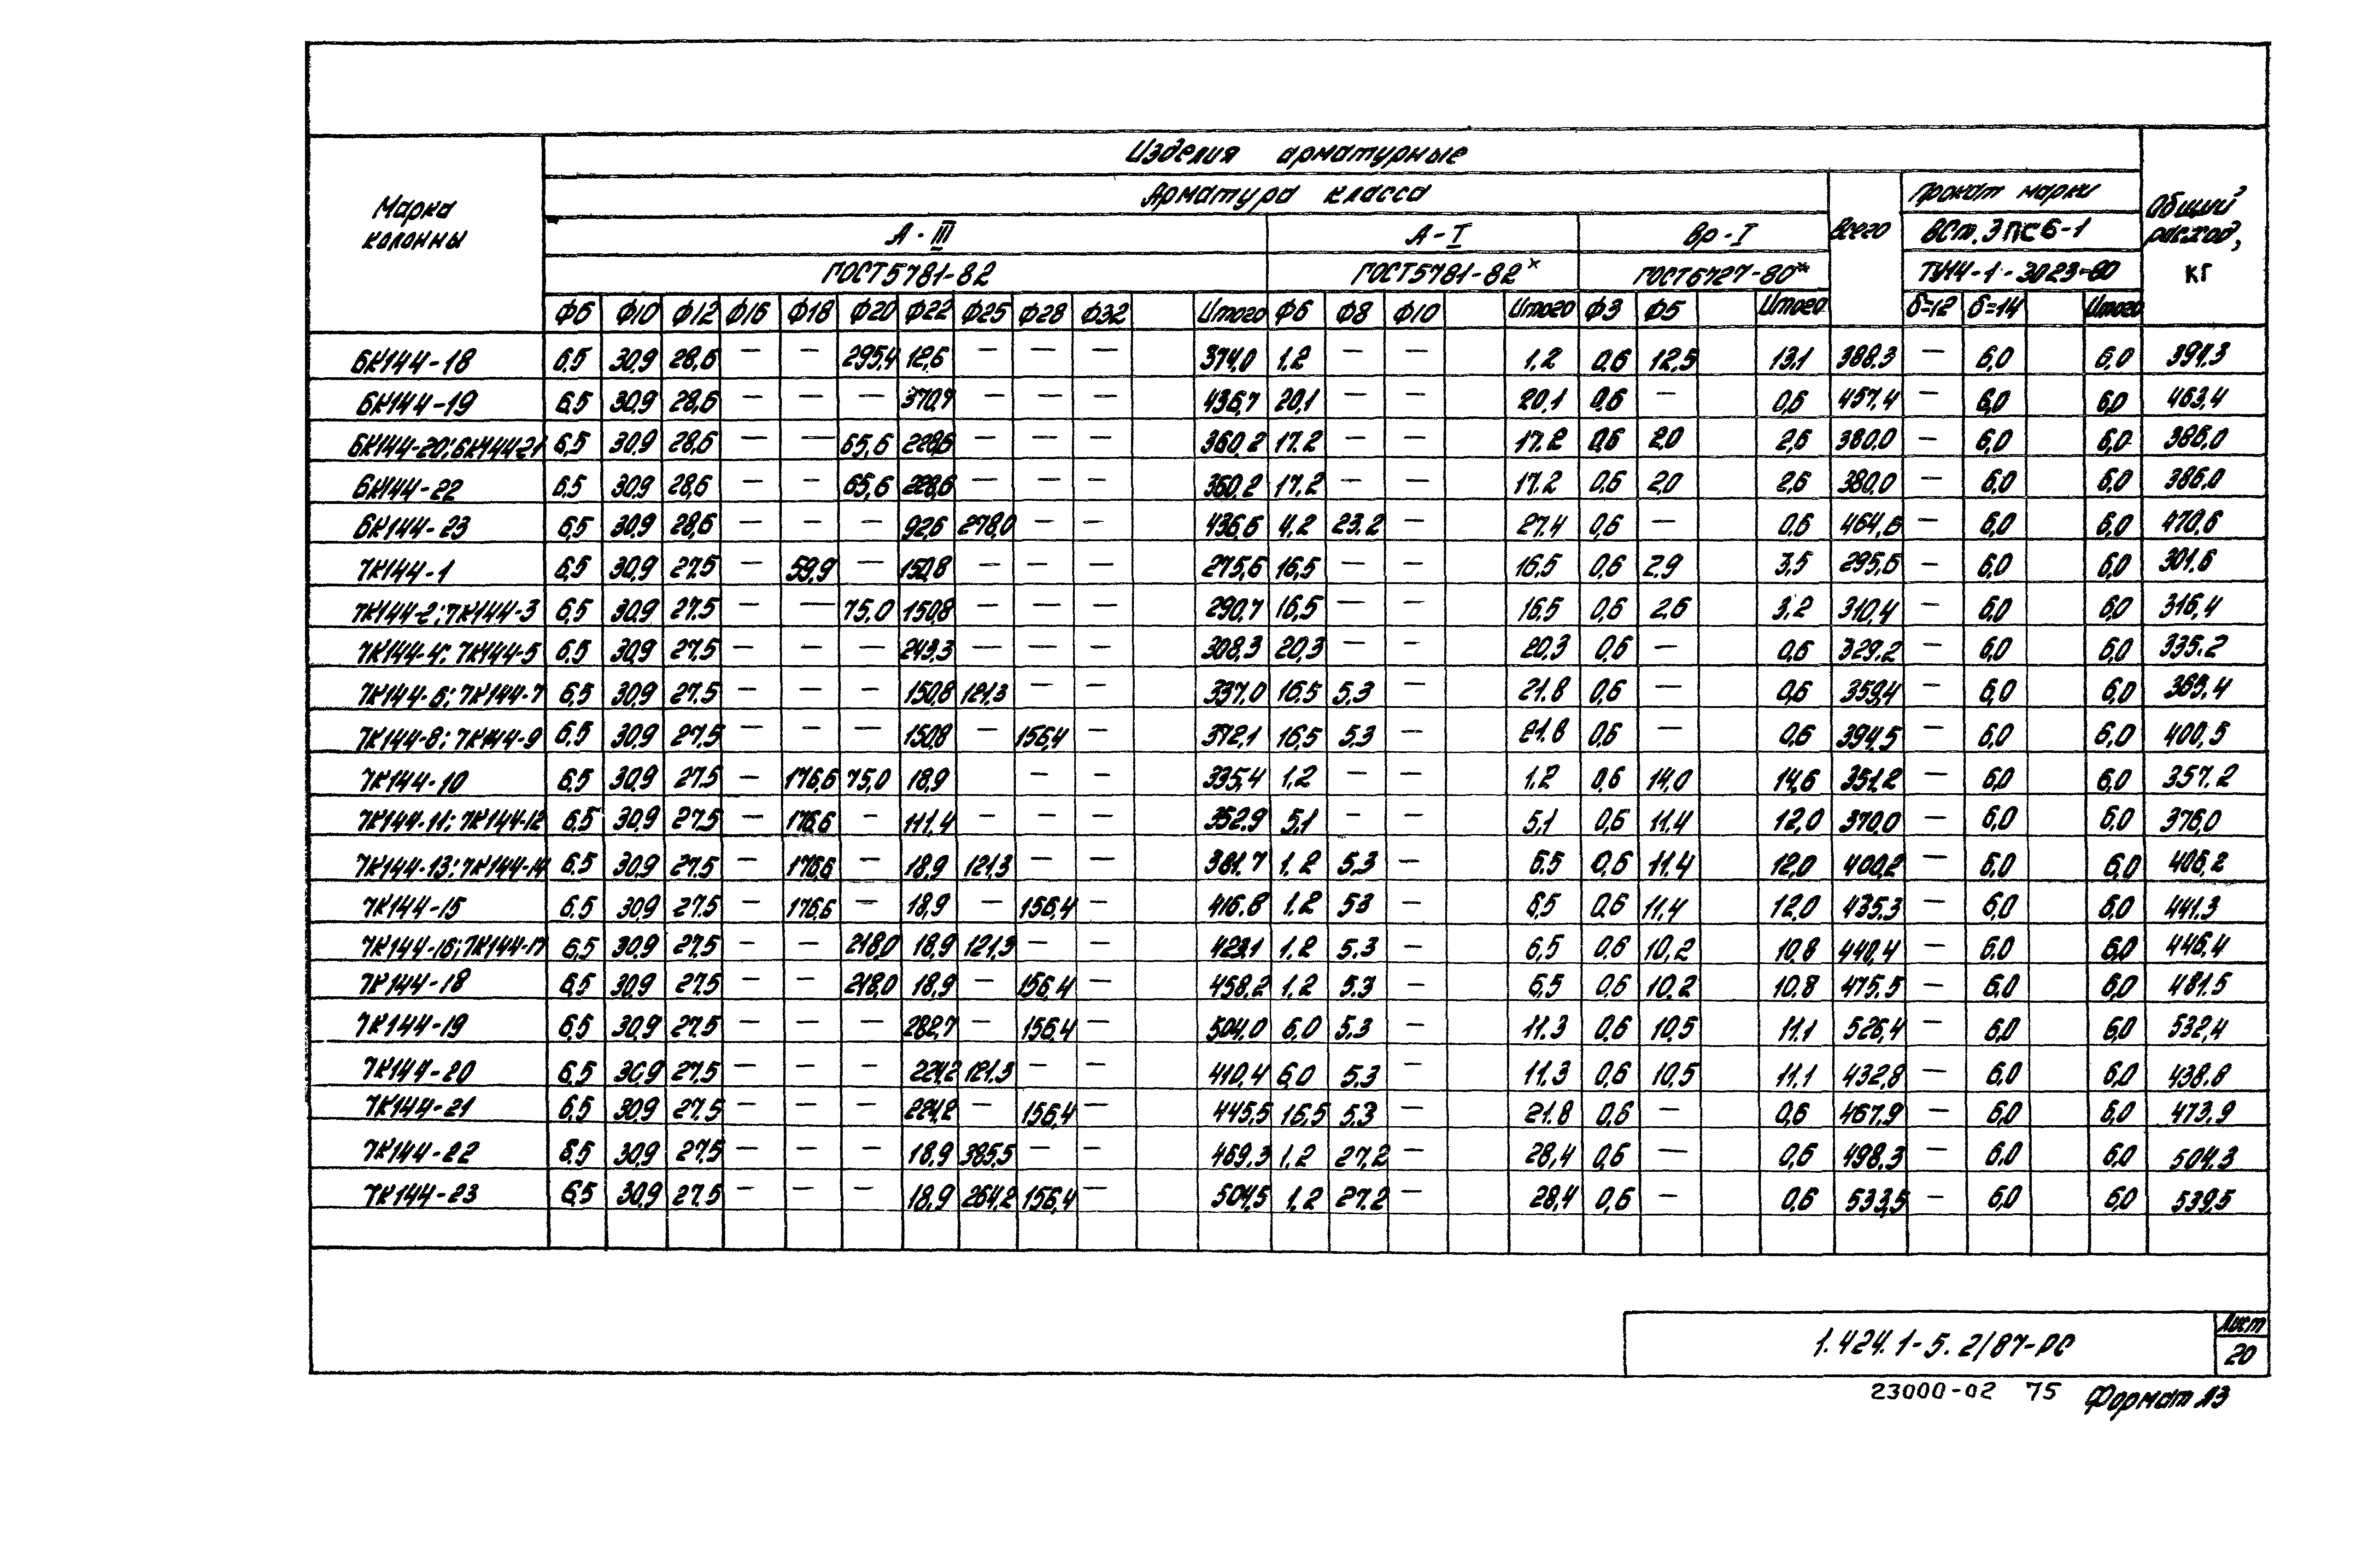 Изделия арматурные
Марка колонны
Арматура класса
Всего
Прокат марки
Общий расход, кг
А-III
А-I
Вр-I
ВСт.3ПС6-1
ГОСТ5781-82
ГОСТ5781-82*
ГОСТ6727-80*
ТУ14-1-3023-80
Ф6 Ф10 Ф12 Ф16 Ф18 Ф20 Ф22 Ф25 Ф28 Ф32 Итого Ф6 Ф8 Ф10 Итого Ф3 Ф5 Итого б=12 б=14 Итого
6К144-18 6,5 30,9 28,6 — — 295,4 12,6 — — — 374,0 1,2 — — 1,2 0,6 12,5 13,1 388,3 — 6,0 6,0 394,3
6К144-19 6,5 30,9 28,6 — — — 370,7 — — — 436,7 20,1 — — 20,1 0,6 — 0,6 457,4 — 6,0 6,0 463,4
6К144-20; 6К144-21 6,5 30,9 28,6 — — 65,6 228,6 — — — 360,2 17,2 — — 17,2 0,6 2,0 2,6 380,0 — 6,0 6,0 386,0
6К144-22 6,5 30,9 28,6 — — 65,6 228,6 — — — 360,2 17,2 — — 17,2 0,6 2,0 2,6 380,0 — 6,0 6,0 386,0
6К144-23 6,5 30,9 28,6 — — — 92,6 278,0 — — 436,6 4,2 23,2 — 27,4 0,6 — 0,6 464,6 — 6,0 6,0 470,6
7К144-1 6,5 30,9 27,5 — 59,9 — 150,8 — — — 275,6 16,5 — — 16,5 0,6 2,9 3,5 295,6 — 6,0 6,0 301,6
7К144-2; 7К144-3 6,5 30,9 27,5 — — 75,0 150,8 — — — 290,7 16,5 — — 16,5 0,6 2,6 3,2 310,4 — 6,0 6,0 316,4
7К144-4; 7К144-5 6,5 30,9 27,5 — — — 243,3 — — — 308,3 20,3 — — 20,3 0,6 — 0,6 329,2 — 6,0 6,0 335,2
7К144-6; 7К144-7 6,5 30,9 27,5 — — — 150,8 121,3 — — 337,0 16,5 5,3 — 21,8 0,6 — 0,6 359,4 — 6,0 6,0 365,4
7К144-8; 7К144-9 6,5 30,9 27,5 — — — 150,8 — 156,4 — 372,1 16,5 5,3 — 21,8 0,6 — 0,6 394,5 — 6,0 6,0 400,5
7К144-10 6,5 30,9 27,5 — 176,6 75,0 18,9 — — 335,4 1,2 — — 1,2 0,6 14,0 14,6 351,2 — 6,0 6,0 357,2
7К144-11; 7К144-12 6,5 30,9 27,5 — 176,6 — 111,4 — — — 352,9 5,1 — — 5,1 0,6 11,4 12,0 370,0 — 6,0 6,0 376,0
7К144-13; 7К144-14 6,5 30,9 27,5 — 176,6 — 18,9 121,3 — — 381,7 1,2 5,3 — 6,5 0,6 11,4 12,0 400,2 — 6,0 6,0 406,2
7К144-15 6,5 30,9 27,5 — 176,6 — 18,9 — 156,4 — 416,8 1,2 53 — 6,5 0,6 11,4 12,0 435,3 — 6,0 6,0 441,3
7К144-16; 7К144-17 6,5 30,9 27,5 — — 218,0 18,9 121,3 — — 423,1 1,2 5,3 — 6,5 0,6 10,2 10,8 440,4 — 6,0 6,0 446,4
7К144-18 6,5 30,9 27,5 — — 218,0 18,9 — 156,4 — 458,2 1,2 5,3 — 6,5 0,6 10,2 10,8 475,5 — 6,0 6,0 481,5
7К144-19 6,5 30,9 27,5 — — — 282,7 — 156,4 — 504,0 6,0 5,3 — 11,3 0,6 10,5 11,1 526,4 — 6,0 6,0 532,4
7К144-20 6,5 30,9 27,5 — — — 224,2 121,3 — — 410,4 6,0 5,3 — 11,3 0,6 10,5 11,1 432,8 — 6,0 6,0 438,8
7К144-21 6,5 30,9 27,5 — — — 224,2 — 156,4 — 445,5 16,5 5,3 — 21,8 0,6 — 0,6 467,9 — 6,0 6,0 473,9
7К144-22 6,5 30,9 27,5 — — — 18,9 385,5 — — 469,3 1,2 27,2 — 28,4 0,6 — 0,6 498,3 — 6,0 6,0 504,3
7К144-23 6,5 30,9 27,5 — — — 18,9 264,2 156,4 — 504,5 1,2 27,2 — 28,4 0,6 — 0,6 533,5 — 6,0 6,0 539,5
1.424.1-5.2/87-РС
Лист
20
23000-02 75 Формат А3